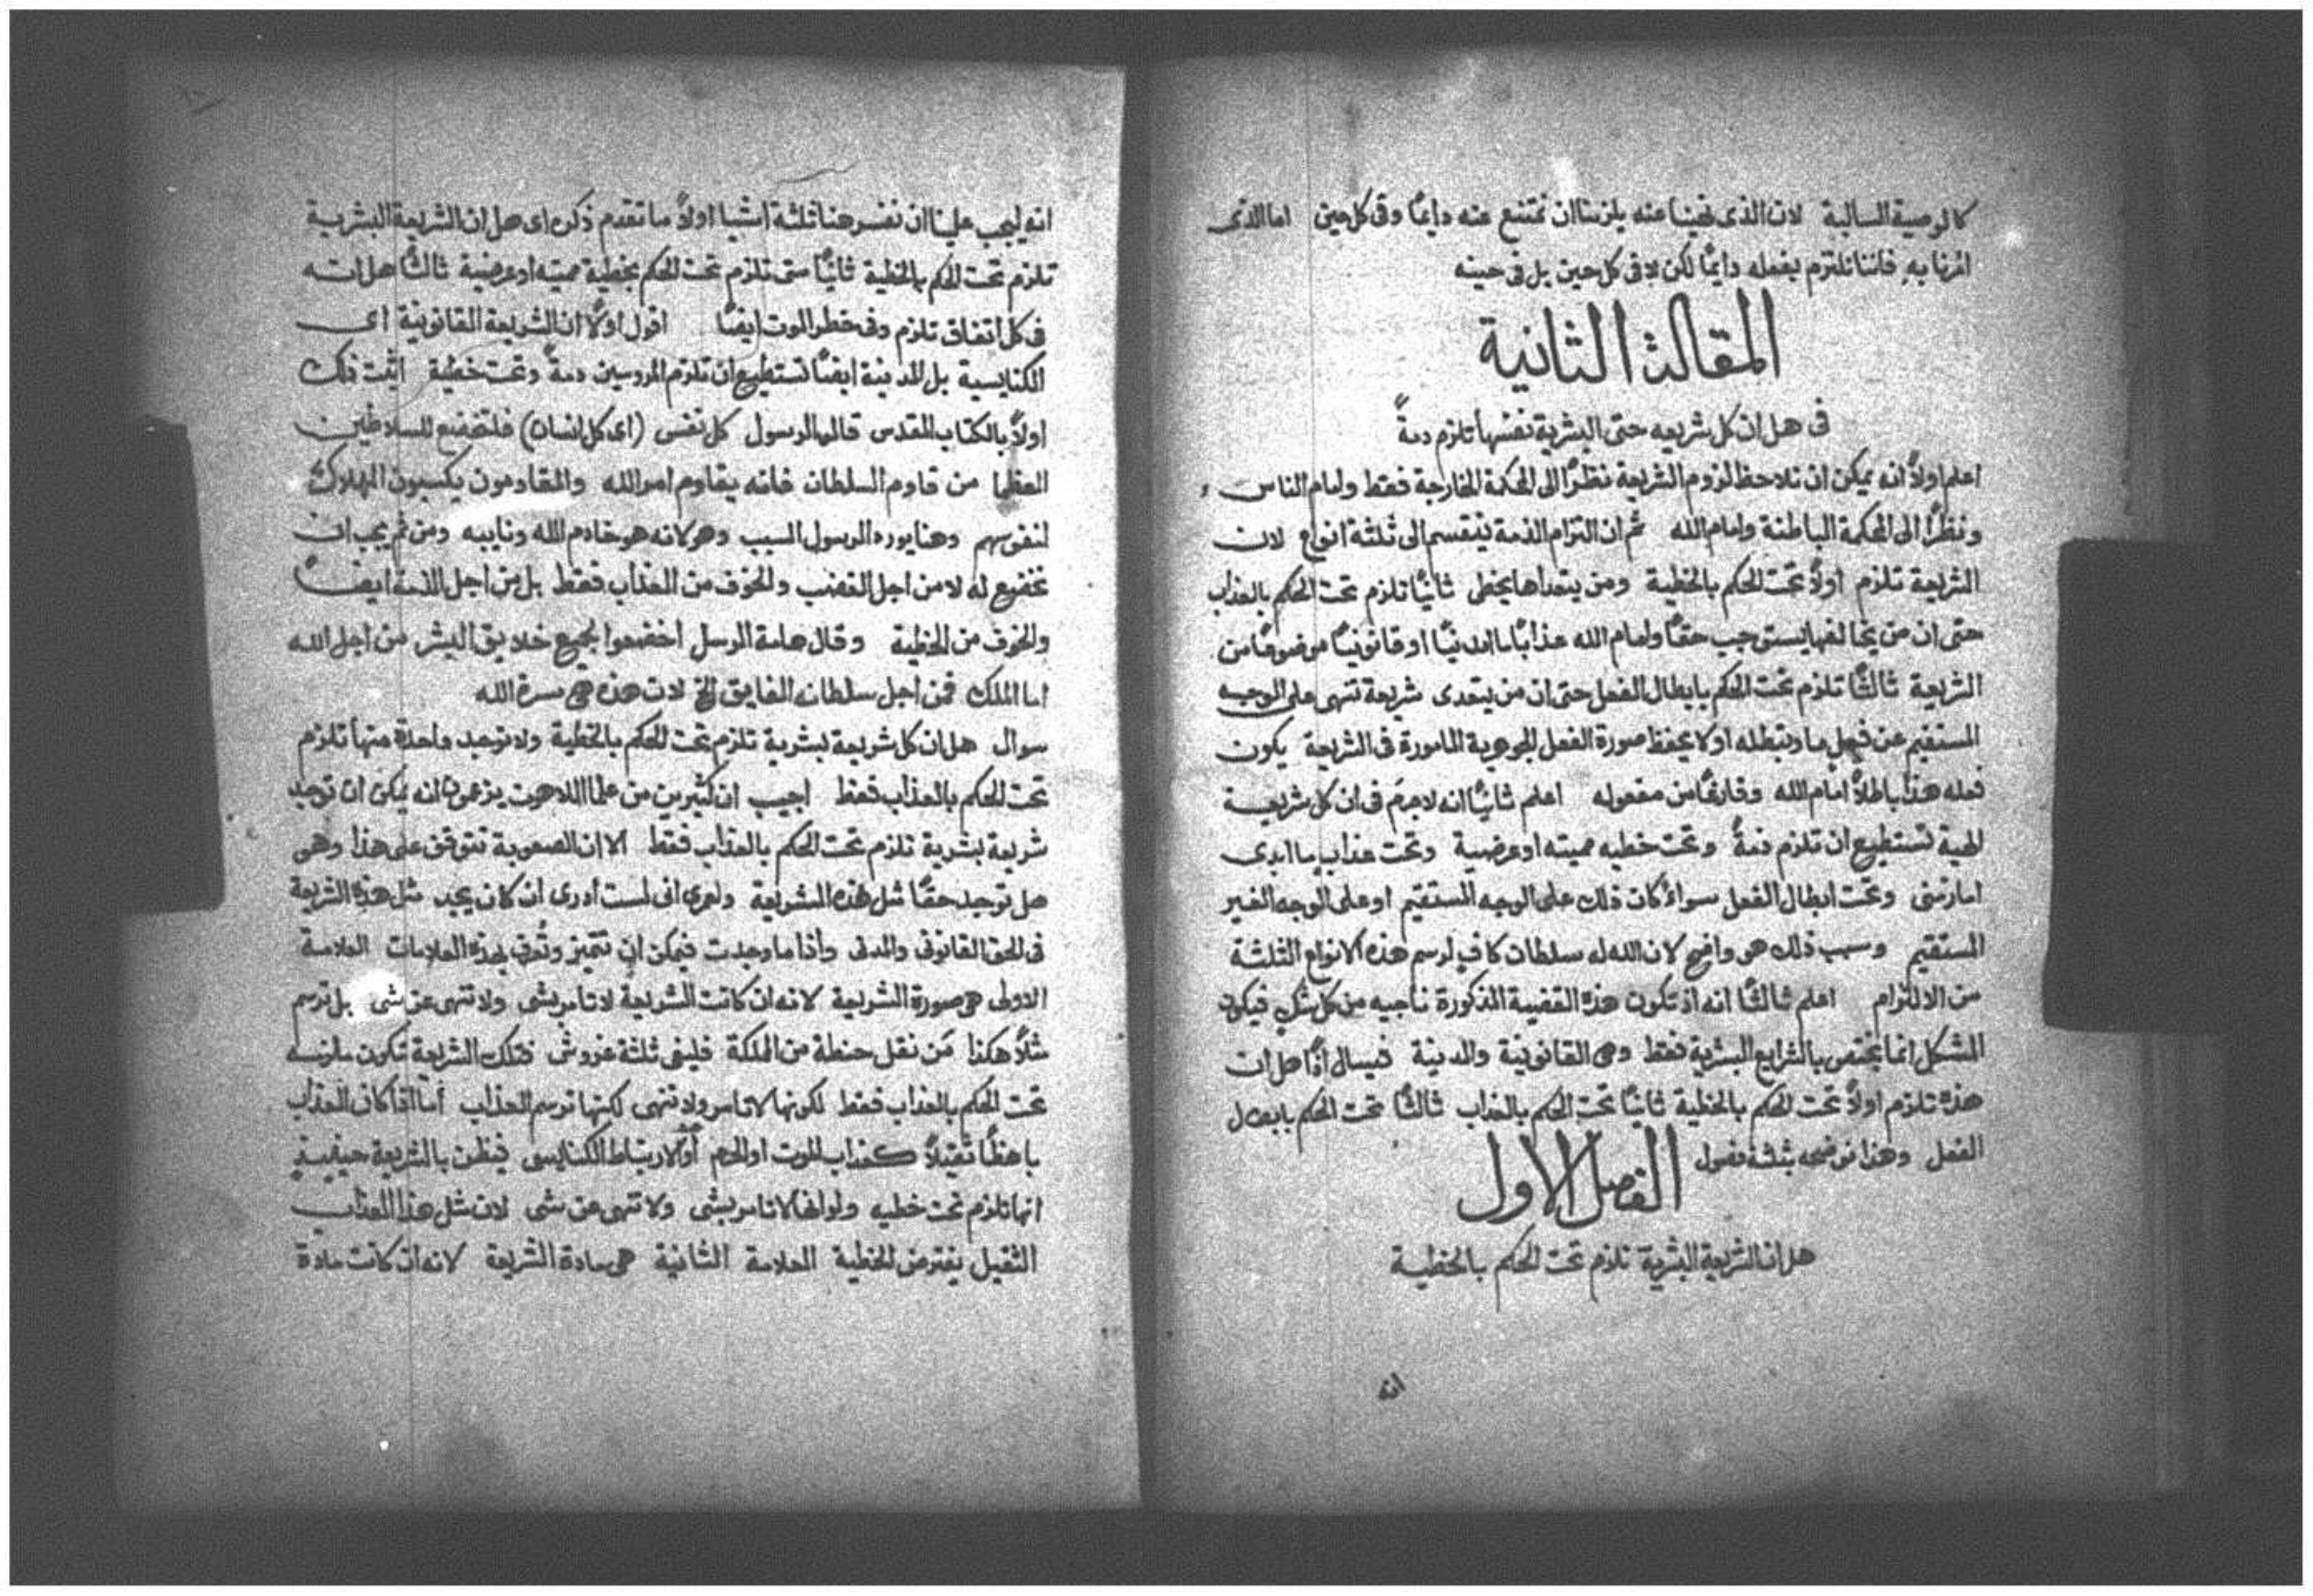 كالوصية السالبة لان الذى نهينا عنه يلزمنا ان نمتنع عنه دايمًا وفى كل حين اما الذى
امرنا به فاننا نلتزم بفعله دايمًا لكن لا فى كل حين بل فى حينه
المقالة الثانية
فى هل ان كل شريعه حتى البشرية نفسها تلزم ذمةً
اعلم اولاً انه يمكن ان نلاحظ لزوم الشريعة نظرًا الى المحكمة الخارجة فقط وامام الناس
ونظرًا الى المحكمة الباطنة وامام الله ثم ان التزام الذمة ينقسم الى ثلثة انواع لان
الشريعة تلزم اولاً تحت الحكم بالخطية ومن يتعداها يخطى ثانيًا تلزم تحت الحكم بالعذاب
حتى ان من يخالفها يستوجب حقًا وامام الله عذابًا ما مدنيًا او قانونيًا موضوعًا من
الشريعة ثالثًا تلزم تحت الحكم بابطال الفعل حتى ان من يتعدى شريعة تنهى على الوجه
المستقيم عن فعل ما وتبطله او لا يحفظ صورة الفعل الجوهرية المامورة فى الشريعة يكون
فعله هذا باطلاً امام الله وفارغًا من مفعوله اعلم ثانيًا انه لا جرم فى ان كل شريعة
الهية تستطيع ان تلزم ذمةً وتحت خطيه مميته او عرضية وتحت عذاب ما ابدى
او زمنى وتحت ابطال الفعل سواءً كان ذلك على الوجه المستقيم او على الوجه الغير
المستقيم وسبب ذلك هو واضح لان الله له سلطان كافٍ لرسم هذه الانواع الثلثة
من الالتزام اعلم ثالثًا انه اذ تكون هذه القضية المذكورة ناجيه من كل شكٍ فيكون
المشكل انما يختص بالشرايع البشرية فقط وهى القانونية والمدنية فيسال اذًا هل ان
هذه تلزم اولاً تحت الحكم بالخطية ثانيًا تحت الحكم بالعذاب ثالثًا تحت الحكم بابطال
الفعل وهذا نوضحه بثلثة فصول
الفصل الاول
هل ان الشريعة البشرية تلزم تحت الحكم بالخطية
انه
انه ليجب علينا ان نفسر هنا ثلثة اشيا اولاً ما تقدم ذكره اى هل ان الشريعة البشرية
تلزم تحت الحكم بالخطية ثانيًا متى تلزم تحت الحكم بخطية مميته او عرضية ثالثًا هل انه
فى كل اتفاق تلزم وفى خطر الموت ايضًا اقول اولاً ان الشريعة القانونية اى
الكنايسية بل المدنية ايضًا تستطيع ان تلزم المروسين ذمةً وتحت خطية اثبت ذلك
اولاً بالكتاب المقدس قال الرسول كل نفس (اى كل انسان) فلتخضع للسلاطين
العظما من قاوم السلطان فانه يقاوم امر الله والمقاومون يكسبون الهلاك
لنفوسهم وهنا يورد الرسول السبب وهو لانه هو خادم الله ونايبه ومن ثم يجب ان
نخضع له لا من اجل الغضب والخوف من العذاب فقط بل من اجل الذمة ايضًا
والخوف من الخطية وقال هامة الرسل اخضعوا لجميع خلايق البشر من اجل الله
اما الملك فمن اجل سلطانه الفايق الخ لان هذه هى مسرة الله
سوال هل ان كل شريعة بشرية تلزم تحت الحكم بالخطية ولا توجد واحدة منها تلزم
تحت الحكم بالعذاب فقط اجيب ان كثيرين من علما اللاهوت يزعمون انه يمكن ان توجد
شريعة بشرية تلزم تحت الحكم بالعذاب فقط الا ان الصعوبة تتوقف على هذا وهى
هل توجد حقًا مثل هذه الشريعة ولعمرى انى لست أدرى ان كان يجد مثل هذه الشريعة
فى الحق القانونى والمدنى واذا ما وجدت فيمكن ان تتميز وتُعرف بهذه العلامات العلامة
الاولى هى صورة الشريعة لانه ان كانت الشريعة لا تامر بشى ولا تنهى عن شى بل ترسم
مثلاً هكذا مَن نقل حنطة من المملكة فليفى ثلثة غروش فتلك الشريعة تكون ملزمه
تحت الحكم بالعذاب فقط لكونها لا تامر ولا تنهى لكنها ترسم العذاب أما اذا كان العذاب
باهظًا ثقيلاً كعذاب الموت او الحرم أو الارتباط الكنايسى فيظن بالشريعة حينيذٍ
انها تلزم تحت خطيه ولو انها لا تامر بشى ولا تنهى عن شى لان مثل هذا العذاب
الثقيل يفترض الخطية العلامة الثانية هى مادة الشريعة لانه ان كانت مادة